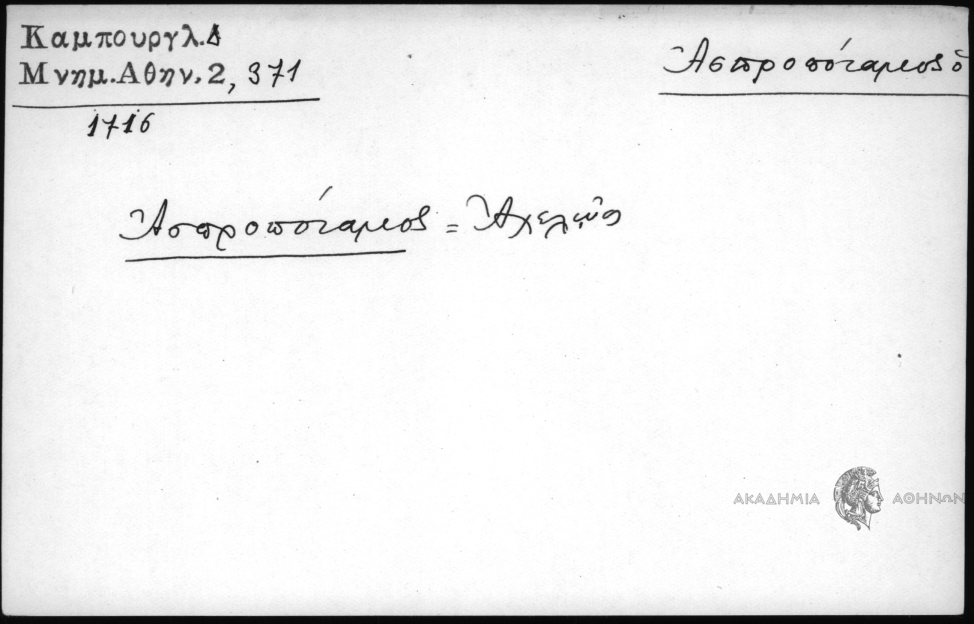 Καμπουργλ.Δ
Μνημ.Αθην.2, 371
1716
Ἀσπροπόταμος ὁ
Ἀσπροπόταμος = Ἀχελῷος
ΑΚΑΔΗΜΙΑ ΑΘΗΝΩΝ